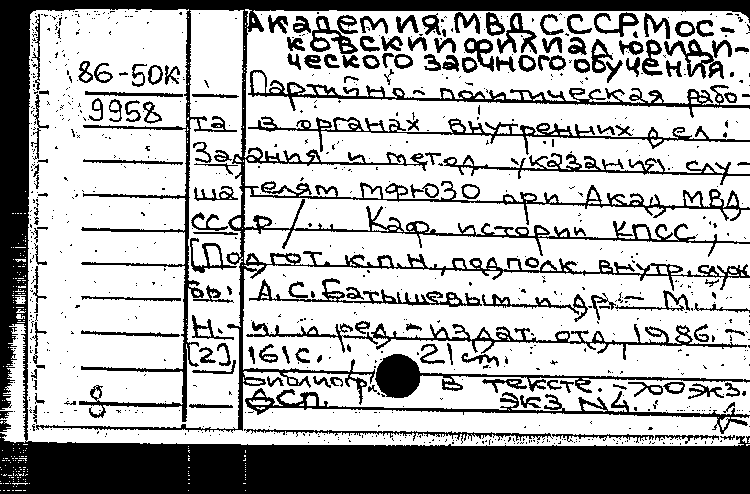 Академия МВД СССР. Мос-
ковский филиал юриди-
ческого заочного обучения.
86-50к
9958
Партийно-политическая рабо-
та в органах внутренних дел:
Задания и метод. указания слу-
шателям МФЮЗО при Акад. МВД
СССР / ... Каф. истории КПСС;
[Подгот. к.п.н., подполк. внутр. служ
бы: А.С. Батышевым и др. - М.:
Н.-и. и ред.-издат. отд, 1986. -
[2], 161 с.; 21 см.
Библиогр. в тексте. - 700 экз.
ДСП. Экз. №4.
8